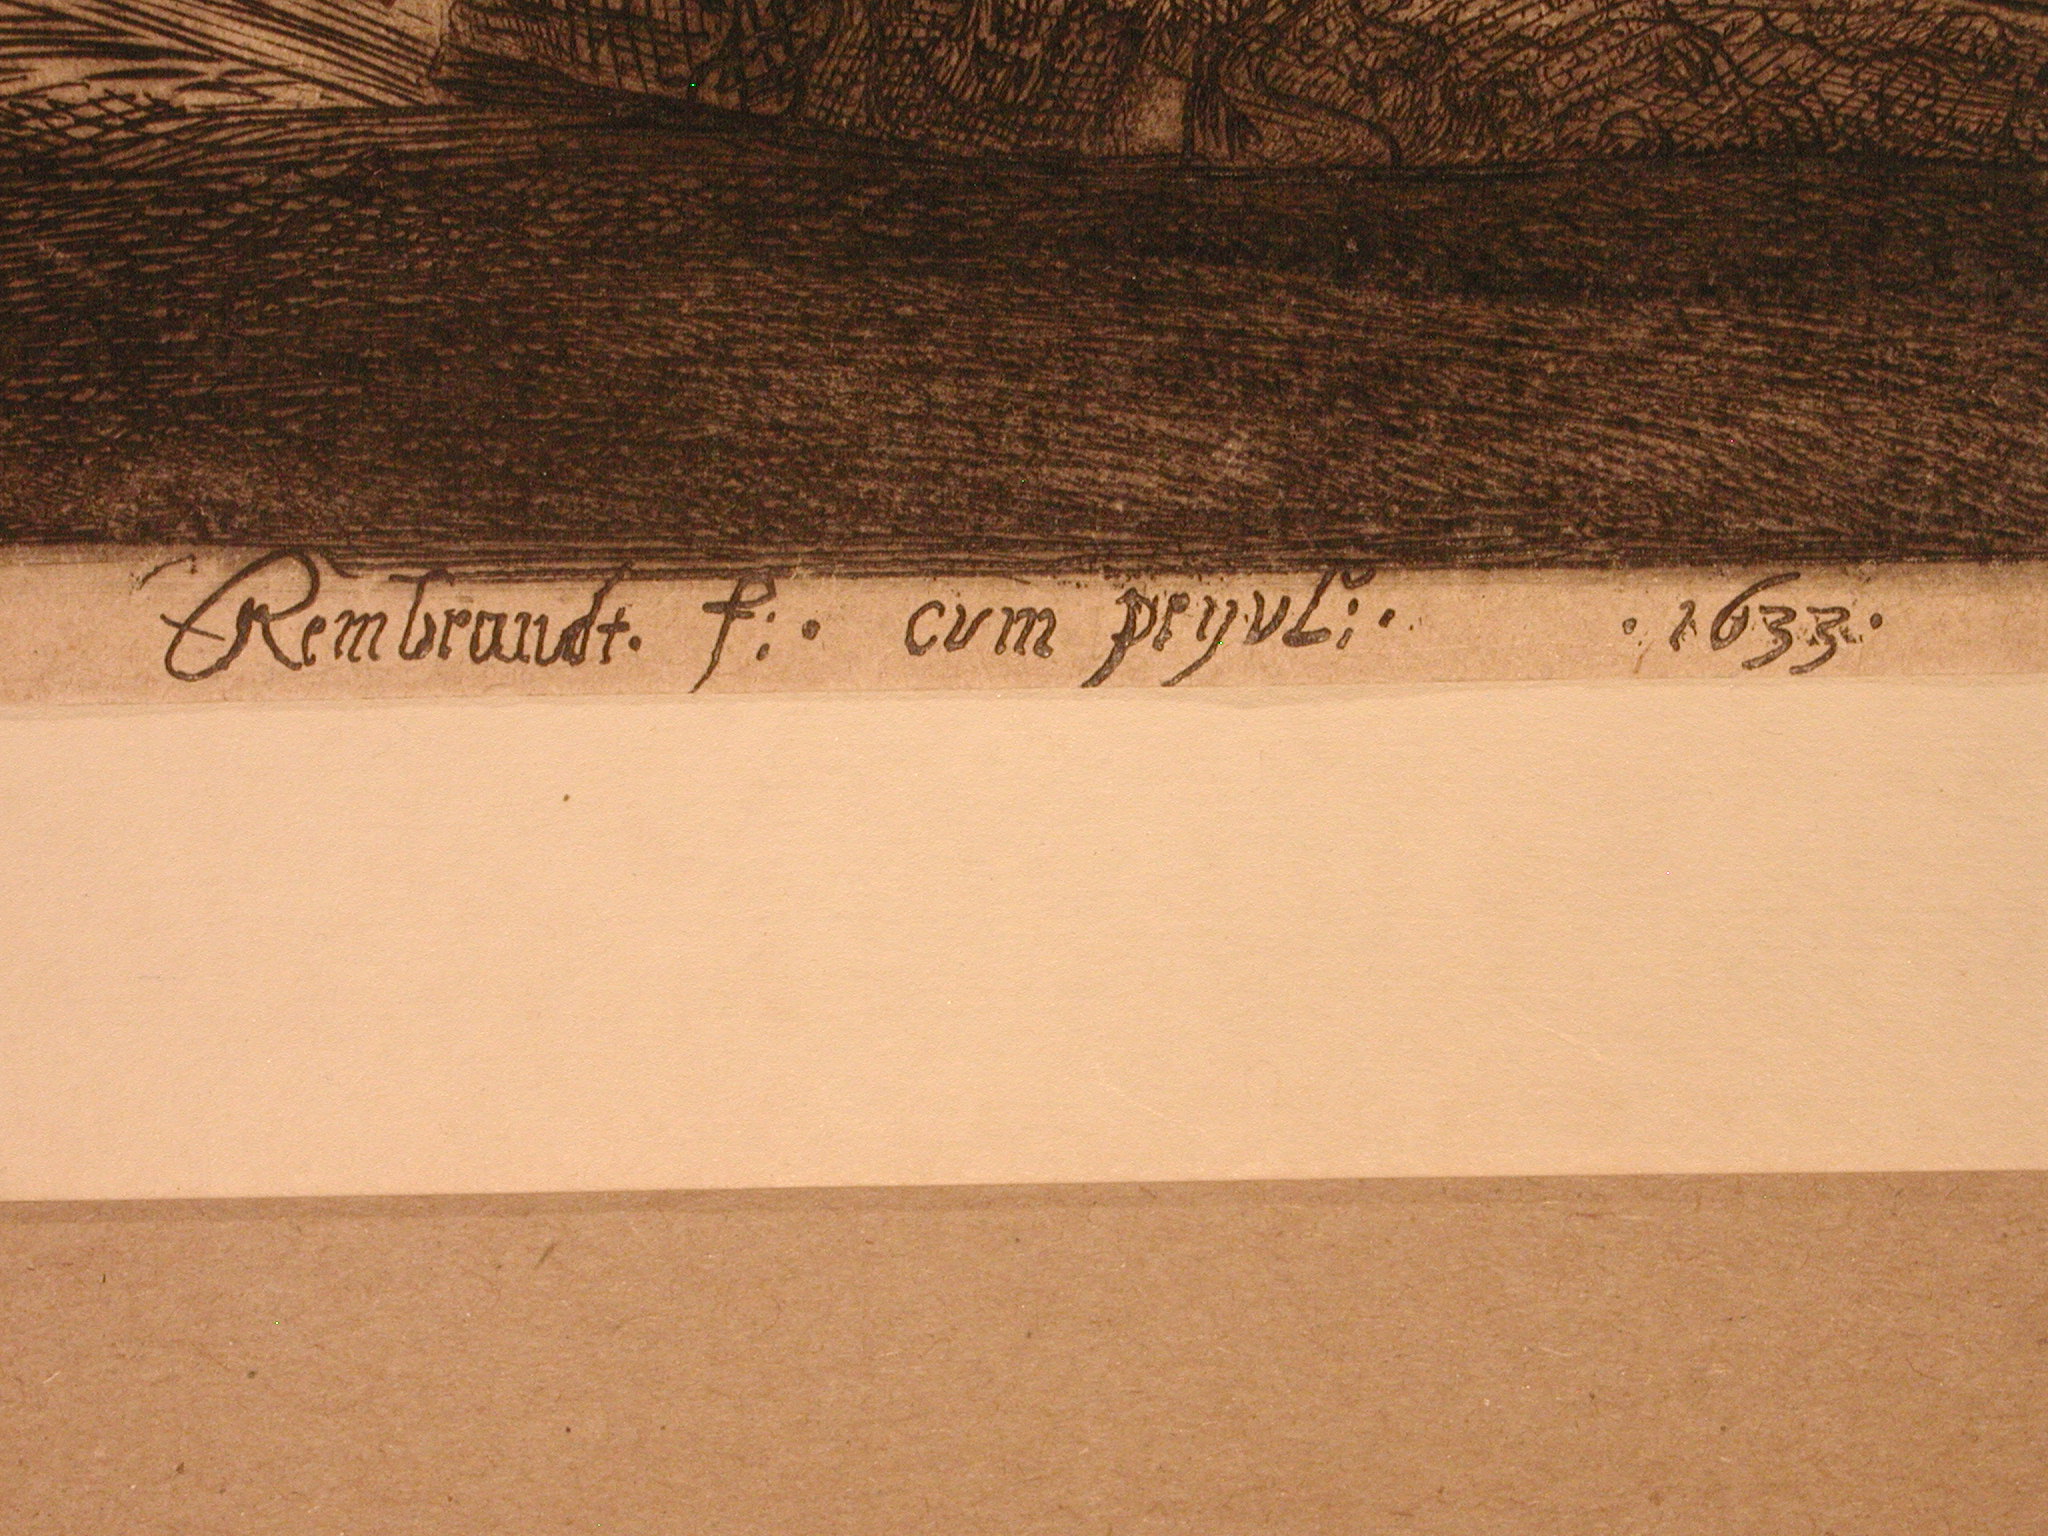 Rembrandt. f:. cum pryvlo:. .1633.